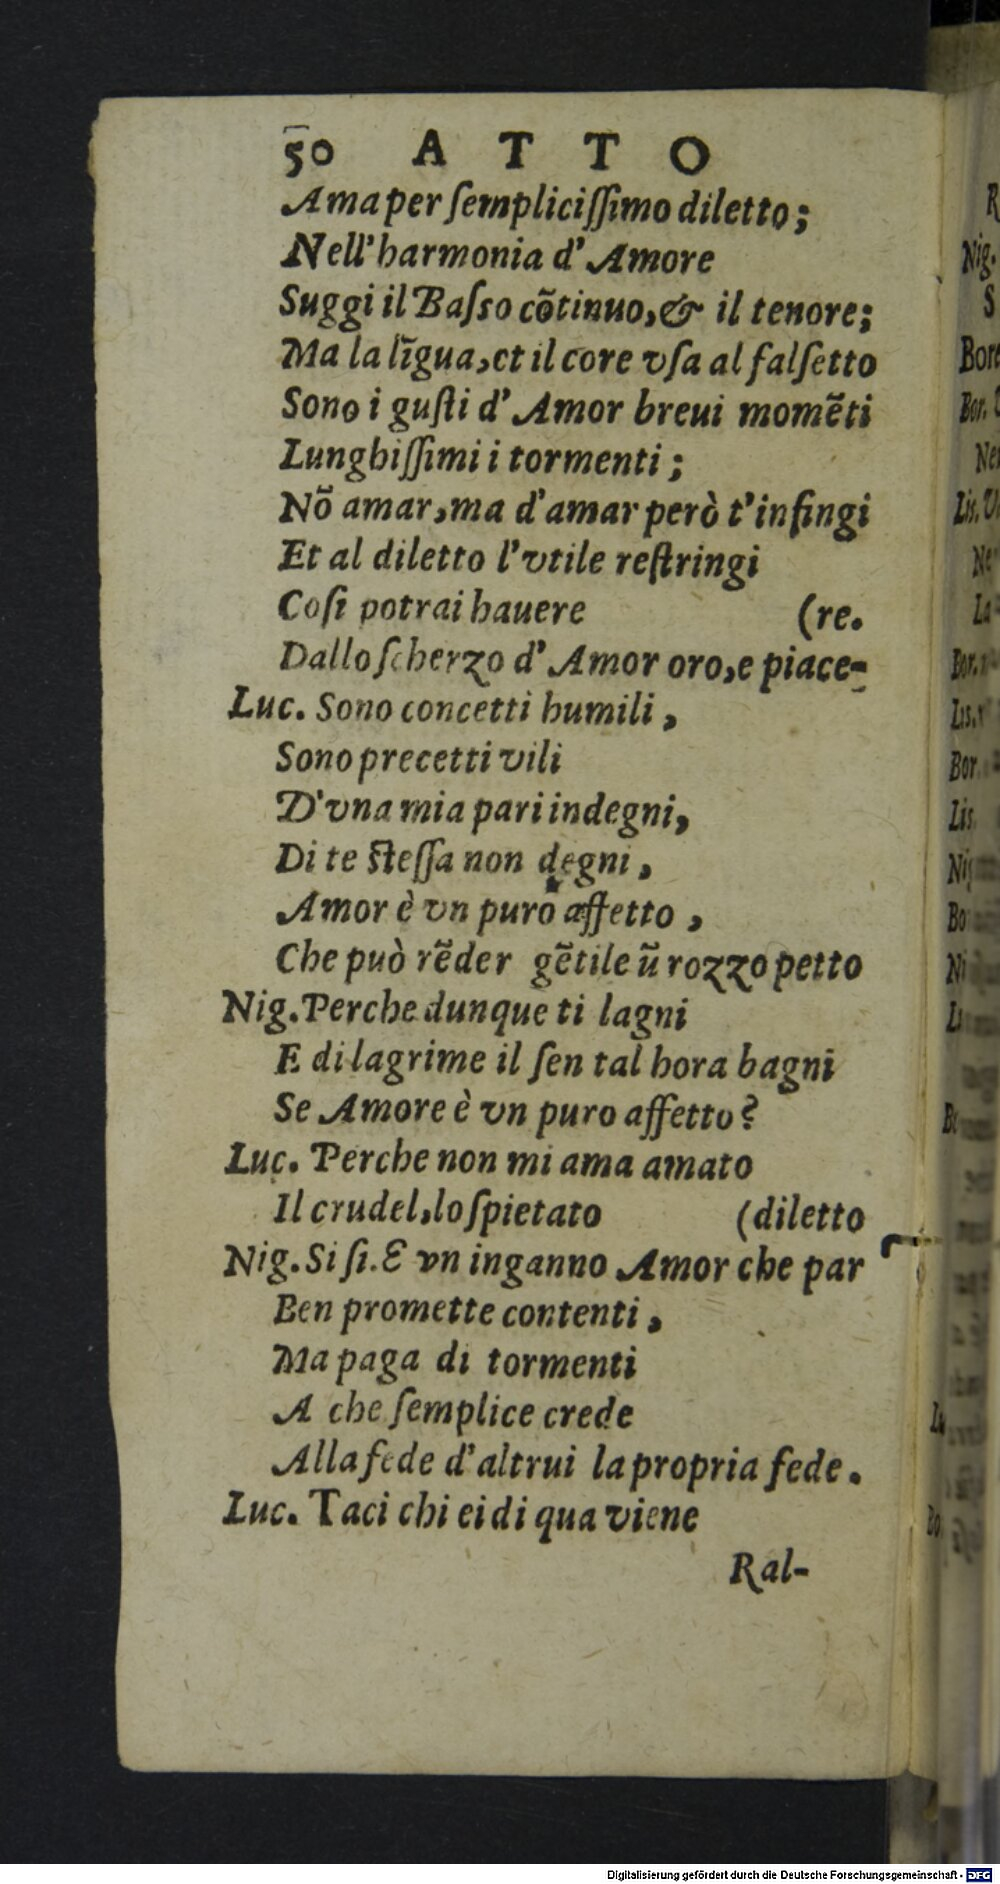 50 ATTO
Ama per ſempliciſſimo diletto;
Nell'harmonia d'Amore
Suggi il Baſso cõtinuo,& il tenore;
Ma la lĩgua,et il core vſa al falſetto
Sono i guſti d'Amor breui momẽti
Lunghiſſimi i tormenti;
Nõ amar,ma d'amar però t'infingi
Et al diletto l'vtile reſtringi
Coſi potrai hauere (re.
Dallo ſcherzo d'Amor oro,e piace-
Luc. Sono concetti humili,
Sono precetti vili
D'vna mia pari indegni,
Di te ſteſſa non degni,
Amor è vn puro affetto,
Che può rẽder gẽtile ũ rozzo petto
Nig. Perche dunque ti lagni
E di lagrime il ſen tal hora bagni
Se Amore è vn puro affetto?
Luc. Perche non mi ama amato
Il crudel,lo ſpietato (diletto
Nig. Si ſi. E vn inganno Amor che par
Ben promette contenti,
Ma paga di tormenti
A che ſemplice crede
Alla fede d'altrui la propria fede.
Luc. Taci chi ei di qua viene
Ral-
R
Nig.
S
Bor.
Lis.
La
Bor.
Lis.
Bor
Lis
Digitalisierung gefördert durch die Deutsche Forschungsgemeinschaft - DFG